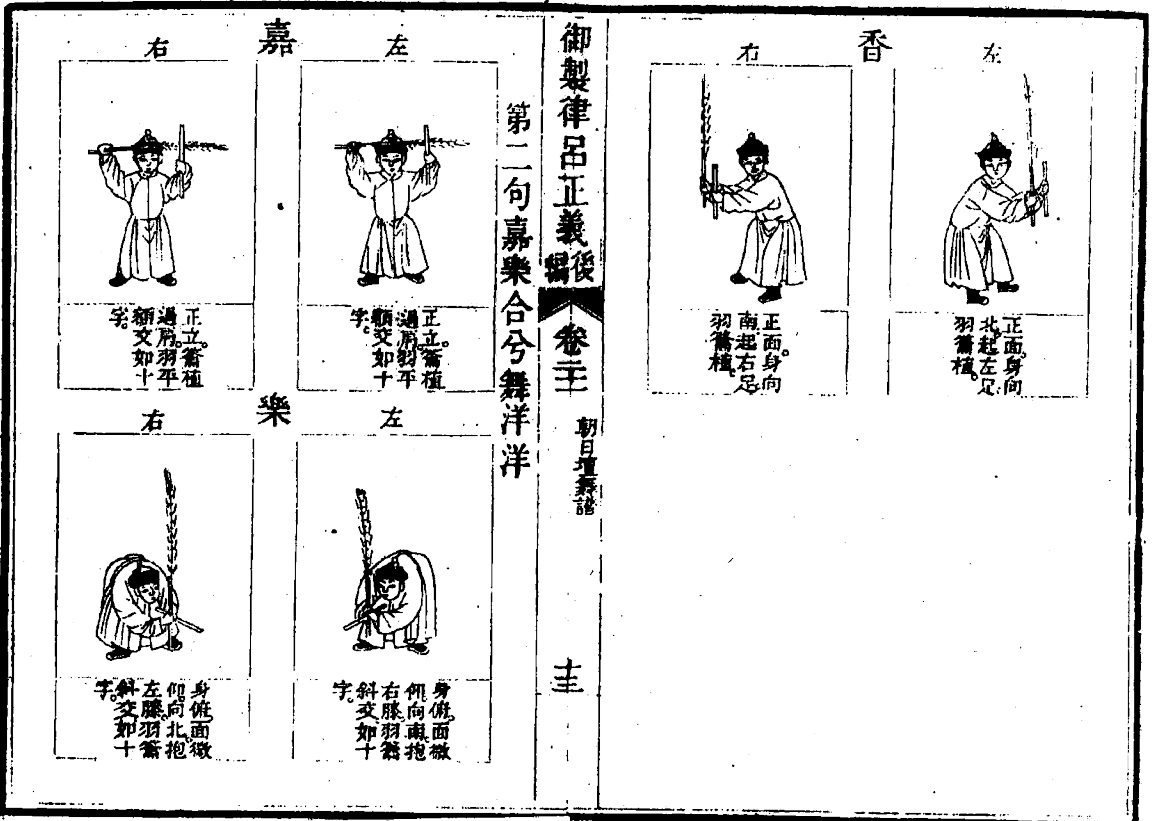 香
左
正面。身向
北。起左足
羽籥植。
右
正面。身向
南。起右足
羽籥植。
御製律呂正義後編
卷二十二
朝日壇舞譜
第二句嘉樂合兮舞洋洋
嘉
左
正立。籥植
過肩。羽平
額交如十
字。
右
正立。籥植
過肩。羽平
額交如十
字。
樂
左
身俯。面微
仰。向南。抱
右膝。羽籥
斜交如十
字。
右
身俯。面微
仰。向北。抱
左膝。羽籥
斜交如十
字。